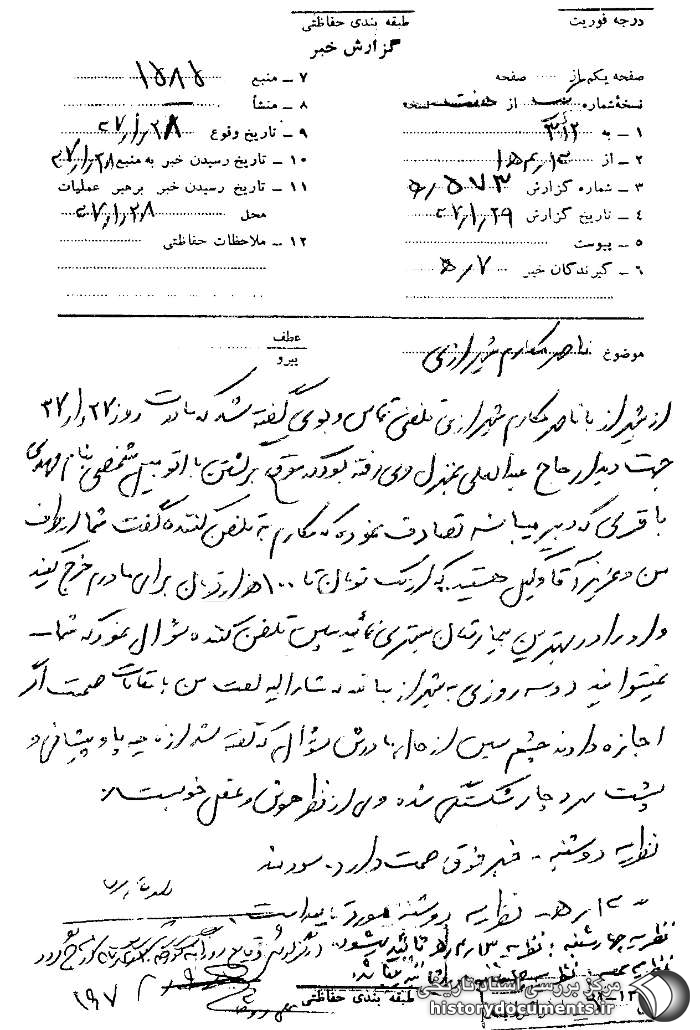 درجه فوریت
طبقه بندی حفاظتی
گزارش خبر
صفحه یکم از صفحه
نسخه شماره از هفت نسخه
۱ – به ۳۱۲
۲ – از
۳ – شماره گزارش
۴ – تاریخ گزارش ۳۷٫۱٫۲۹
۵ – پیوست
۶ – گیرندگان خبر
۷ – منبع ۱۵۸۵
۸ – منشأ
۹ – تاریخ وقوع ۳۷٫۱٫۲۸
۱۰ – تاریخ رسیدن خبر به منبع ۳۷٫۱٫۲۸
۱۱ – تاریخ رسیدن خبر برهبر عملیات
محل ۳۷٫۱٫۲۸
۱۲ – ملاحظات حفاظتی
موضوع ناصر مکارم شیرازی
عطف
پیرو
از شیراز با ناصر مکارم شیرازی تلفنی تماس و بوی گفته شد که مادرت روز ۳۷٫۱٫۲۷
جهت دیدار حاج عبدالعلی بمنزل وی رفته بود که موقع برگشتن با اتومبیل شخصی بنام مهدی
باقری که دبیر میباشد تصادف نموده که مکارم به تلفن کننده گفت شما از طرف
من و عزیز آقا وکیل هستید که از یک تومان تا ۱۰۰ هزار تومان برای مادرم خرج کنید
و او را در بهترین بیمارستان بستری نمائید سپس تلفن کننده سؤال نمود که شما
نمیتوانید دو سه روزی به شیراز بیائید مشارالیه گفت من با مقامات صحبت اگر
اجازه دادند چشم سپس از حال مادرش سؤال که گفته شد از ناحیه پا و پیشانی و
پشت سر دچار شکستگی شده ولی از نظر هوش و عقل خوبست.
نظریه دوشنبه – خبر فوق صحت دارد. سودمند
نظریه دوشنبه مورد تایید است.
نظریه چهارشنبه : نظریه تائید میشود.
۲۹۷
طبقه بندی حفاظتی
مرکز بررسی اسناد تاریخی
historydocuments.ir